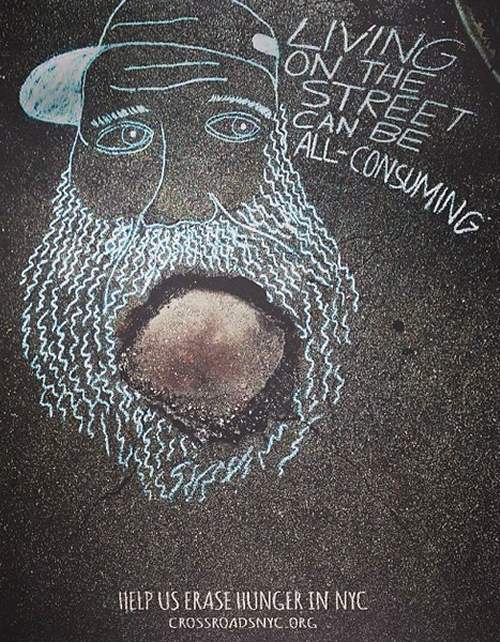 LIVING
ON THE
STREET
CAN BE
ALL-CONSUMING
HELP US ERASE HUNGER IN NYC
CROSSROADSNYC.ORG